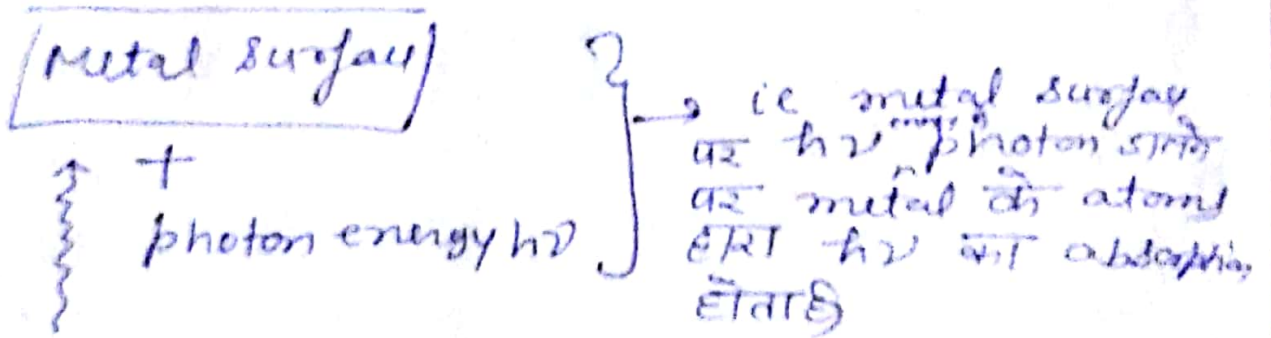 Metal surface
+
photon energy hν
ie metal surface
पर hν photon डालने
पर metal के atoms
द्वारा hν का absorption
होता है